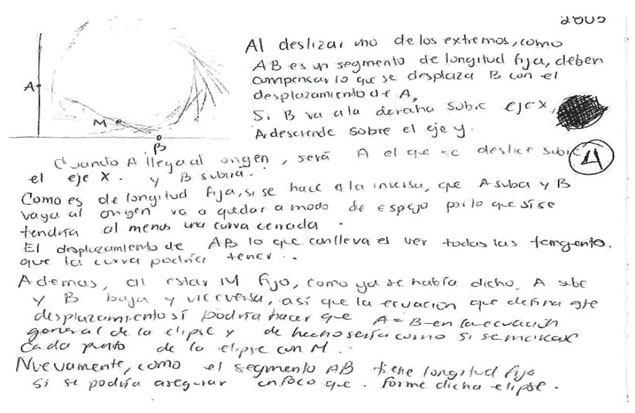 2005
Al deslizar uno de los extremos, como
AB es un segmento de longitud fija, deben
compensar lo que se desplaza B con el
desplazamiento de A,
Si B va a la derecha sobre eje x,
A desciende sobre el eje y.
A
M
B
4
Cuando A llega al origen, será A el que se deslice sobre
el eje X. y B subira.
Como es de longitud fija, si se hace a la inversa, que A suba y B
vaya al origen va a quedar a modo de espejo por lo que si se
tendria al menos una curva cerrada.
El desplazamiento de AB lo que conlleva es ver todas las tangente.
que la curva podria tener..
Ademas, al estar M fijo, como ya se habia dicho, A sube
y B baja y viceversa, asi que la ecuacion que defina este
desplazamiento si podria hacer que A=B en la ecuación
general de la elipse y de hecho seria como si se marcase
Cada punto de la elipse con M...
Nuevamente, como el segmento AB tiene longitud fija
si se podria asegurar que forme dicha elipse.